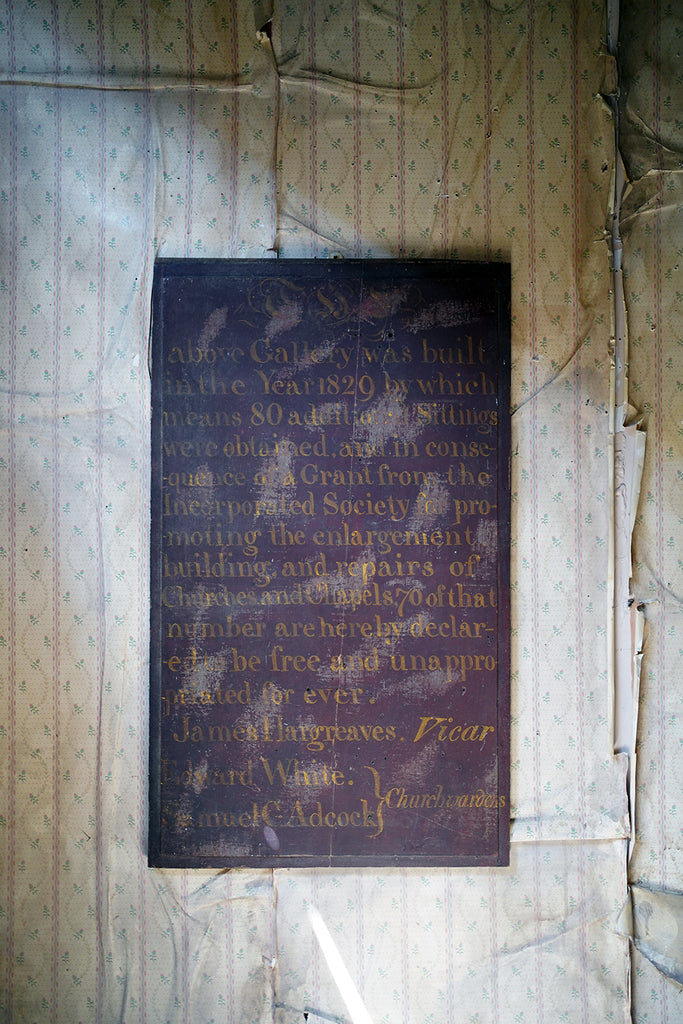 THE
above Gallery was built
in the Year 1829 by which
means 80 additional Sittings
were obtained, and in conse-
-quence of a Grant from the
Incorporated Society for pro-
moting the enlargement,
building, and repairs of
Churches and Chapels 70 of that
number are hereby declar-
-ed to be free and unappro-
priated for ever.
James Hargreaves. Vicar
Edward White.
Samuel C. Adcock } Churchwardens